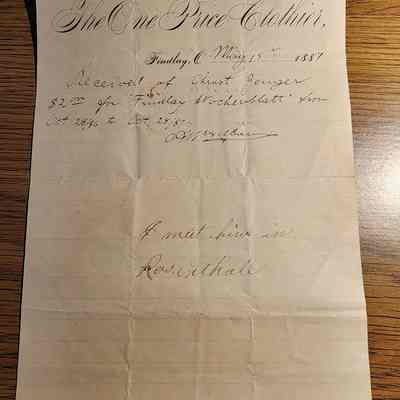 The One Price Clothier,
Findlay, O. May 1887
Received of Christ
$2.00 for "Findlay Wochenblatt" from
Oct 28/86 to Oct 28/87.
I meet him in
Rosenthale